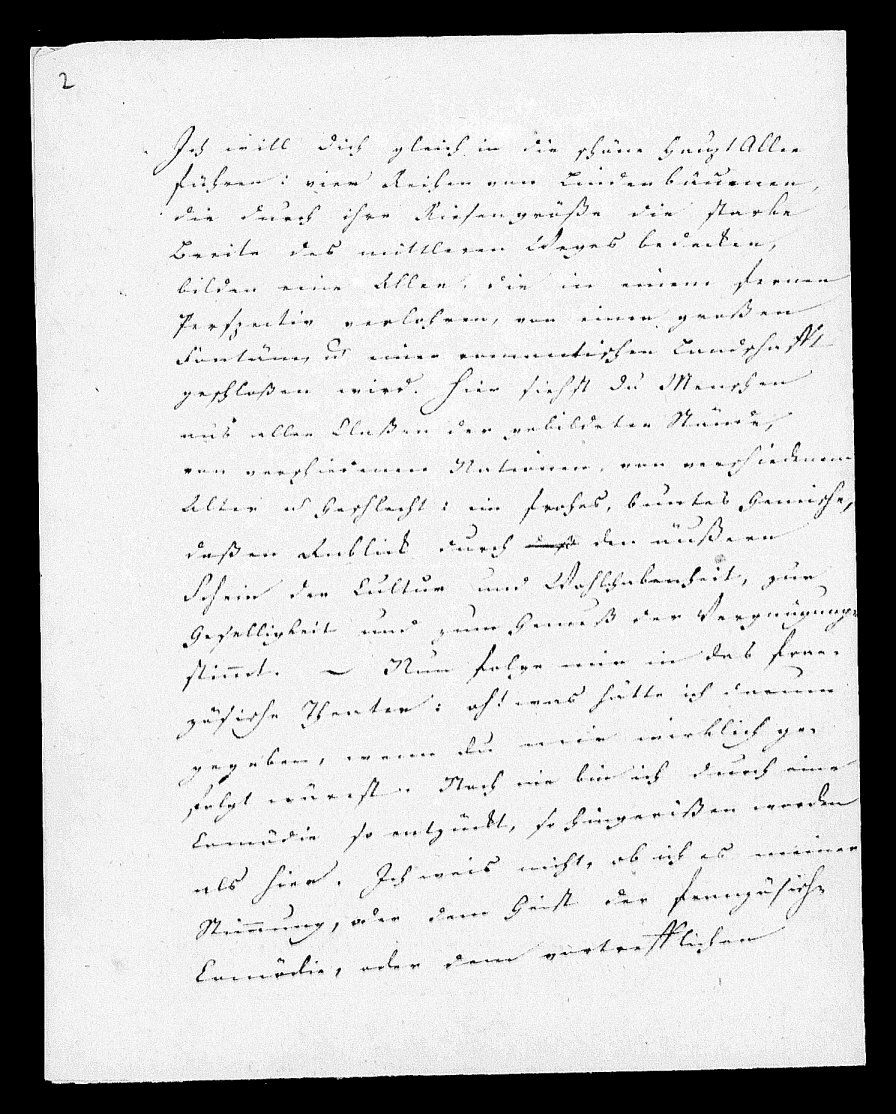 2
Ich will dich gleich in die schöne Haupt Allee
führen: vier Reihen von Lindenbäumen,
die durch ihre Riesengröße die starke
Breite des mittleren Weges bedecken,
bilden eine Allee, die in einem fernen
Perspectiv verlohren, von einer großen
Fontäne, u einer romantischen Landschafft
geschloßen wird. Hier siehst du Menschen
aus allen Claßen der gebildeten Stände,
von verschiedenen Nationen, von verschiedenem
Alter u Geschlecht: ein frohes, buntes Gemische,
deßen Anblick durch den äußern
Schein der Cultur und Wohlhabenheit, zur
Geselligkeit und zum Genuß der Vergnügungen
stimmt. – Nun folge mir in das fran-
zösische Theater: ach! was hätte ich darum
gegeben, wenn du mir wirklich ge-
folgt wärest. Noch nie bin ich durch eine
Comödie so entzückt, so hingerißen worden
als hier. Ich weis nicht, ob ich es meiner
Stimmung, oder dem Geist der französische
Comödie, oder dem vortrefflichen